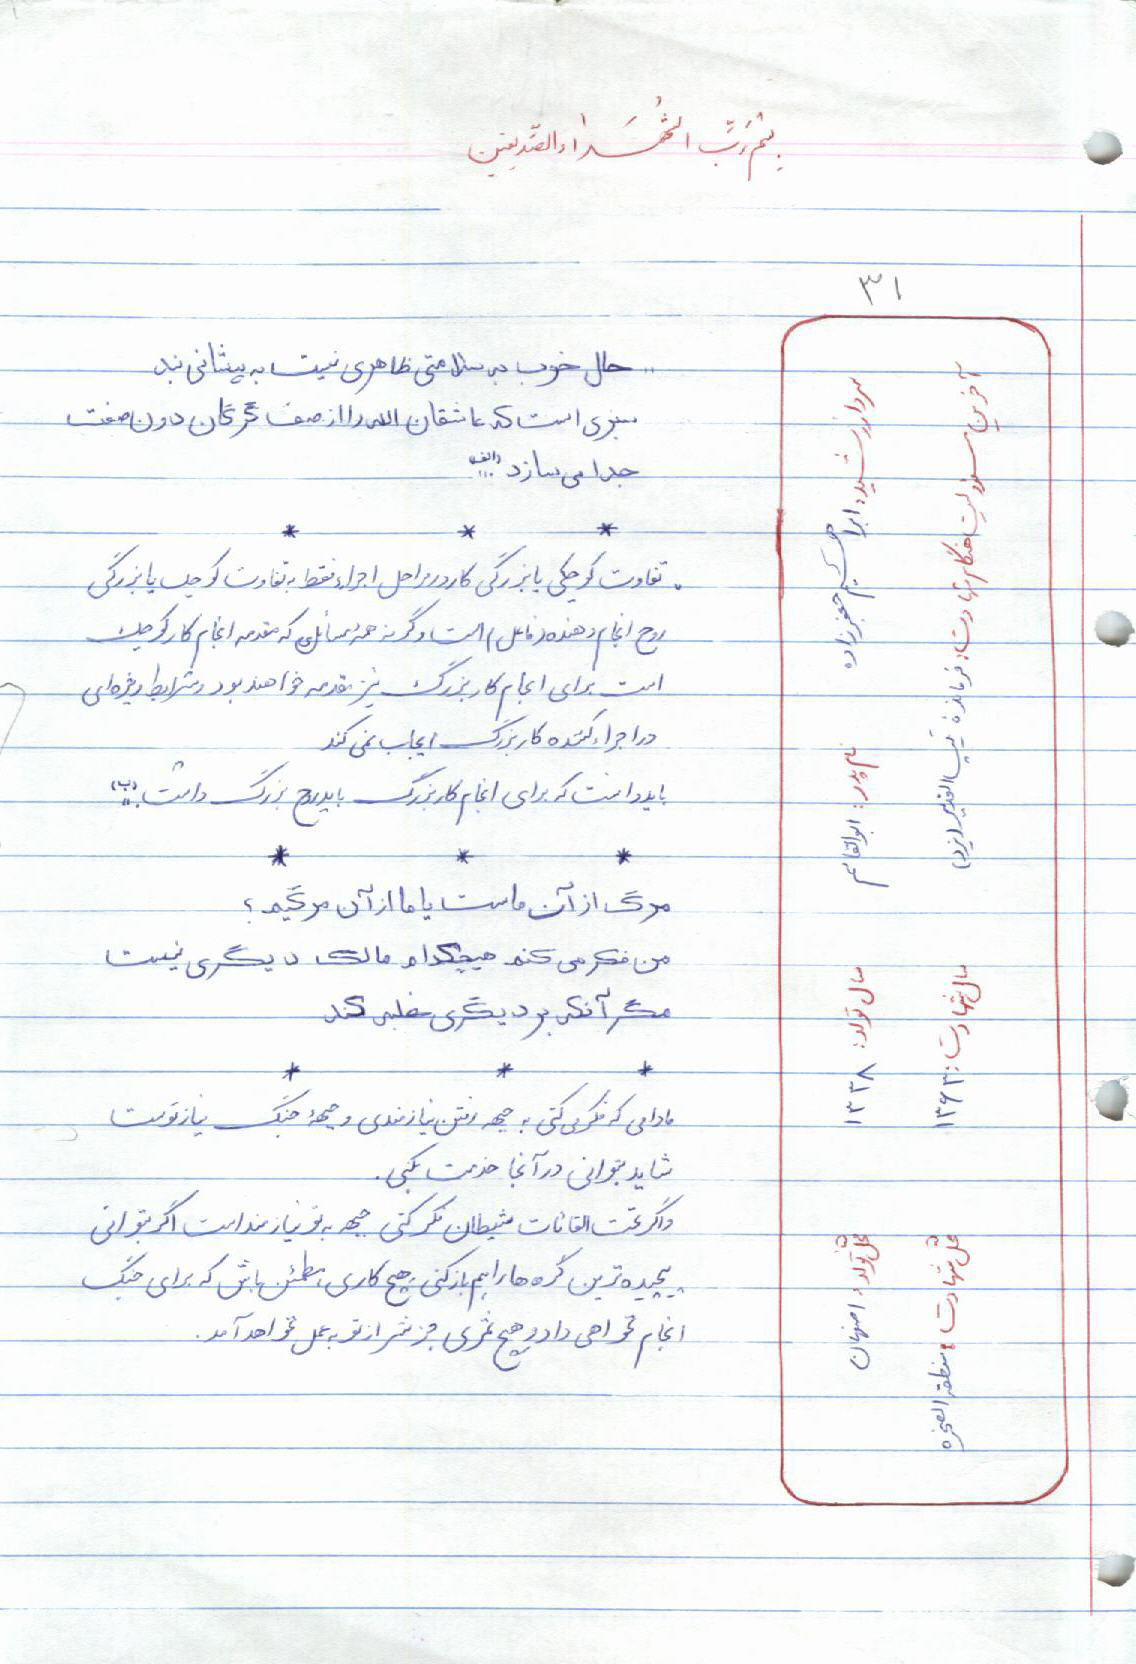 بسم رَبِّ الشُّهَداء والصّدیقین
۳۱
سردار رشید: ابراهیم جعفرزاده
نام پدر: ابوالقاسم
سال تولد: ۱۳۳۸
محل تولد: اصفهان
آخرین مسئولیت هنگام شهادت: فرمانده تیپ الغدیر (یزد)
سال شهادت: ۱۳۶۳
محل شهادت: منطقه الصخره
.. حال خوب به سلامتی ظاهری نیست به پیشانی بند
سبزی است که عاشقان الله را از صف گرگان دون صفت
جدا می سازد (الف)
* * *
. تفاوت کوچکی یا بزرگی کار در مراحل اجراء فقط به تفاوت کوچک یا بزرگی
روح انجام دهنده (فاعل) است وگرنه همه مسائلی که مقدمه انجام کار کوچک
است برای انجام کار بزرگ نیز مقدمه خواهند بود و شرایط ویژه ای
در اجراء کننده کار بزرگ ایجاب نمی کند
باید دانست که برای انجام کار بزرگ باید روح بزرگ داشت. (ب)
* * *
مرگ از آن ماست یا ما از آن مرگیم؟
من فکر می کنم هیچکدام مالک دیگری نیست
مگر آنکه بر دیگری غلبه کند
* * *
مادامی که فکر می کنی به جبهه رفتن نیازمندی و جبهۀ جنگ نیاز توست
شاید بتوانی در آنجا خدمت بکنی.
و اگر تحت القائات شیطان فکر کنی جبهه به تو نیازمند است اگر بتوانی
پیچیده ترین گره ها را هم باز کنی، هیچ کاری، مطمئن باش که برای جنگ
انجام نخواهی داد و هیچ ثمری جز شر از تو به عمل نخواهد آمد.